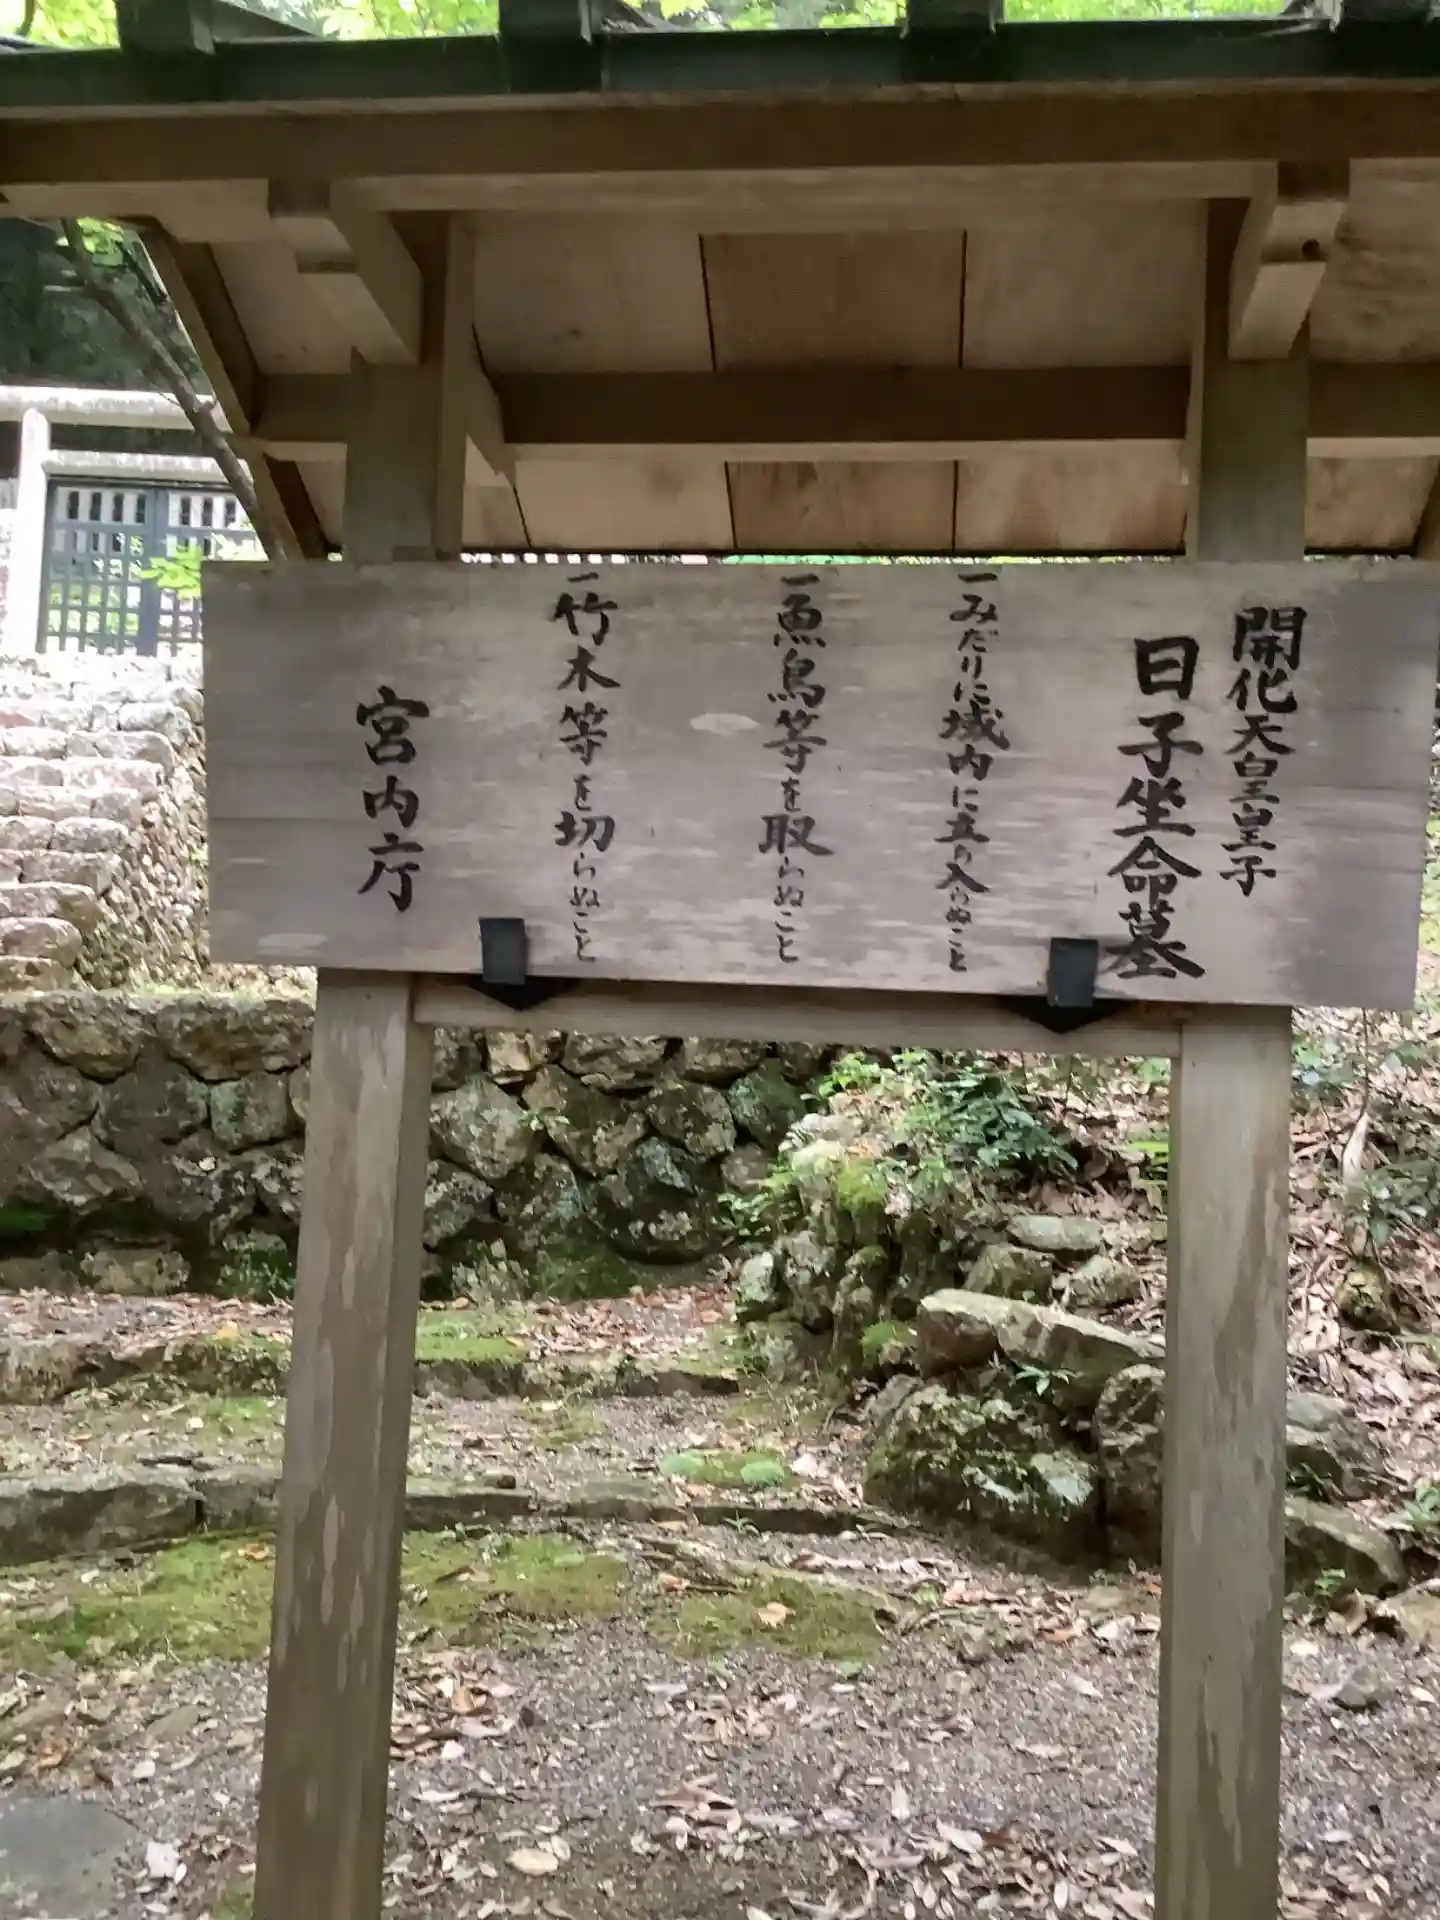 開化天皇皇子
日子坐命墓
一みだりに域内に立ち入らぬこと
一魚鳥等を取らぬこと
一竹木等を切らぬこと
宮内庁